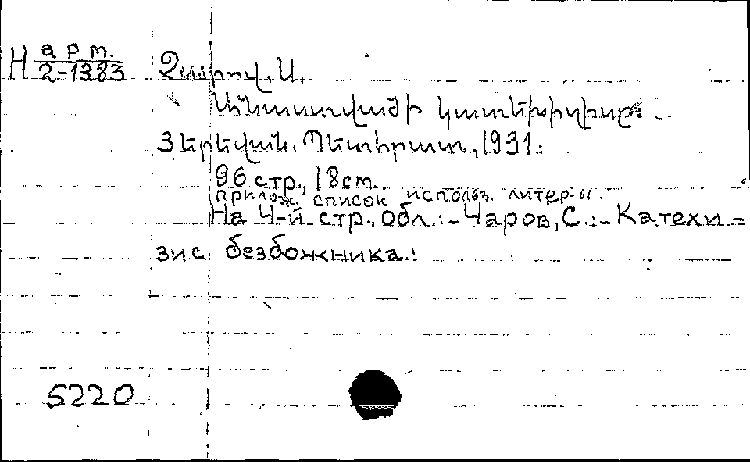 H арт.
2-1383
Չարով, Ս.
Անաստվածի կատեխիզիսը:
Յերեվան, Պետհրատ, 1931:
96 стр., 18 cm.
прилож. список использ. литер-ы
На 4-й стр. обл.: Чаров, С. :- Катехи=
зис безбожника.:
5220